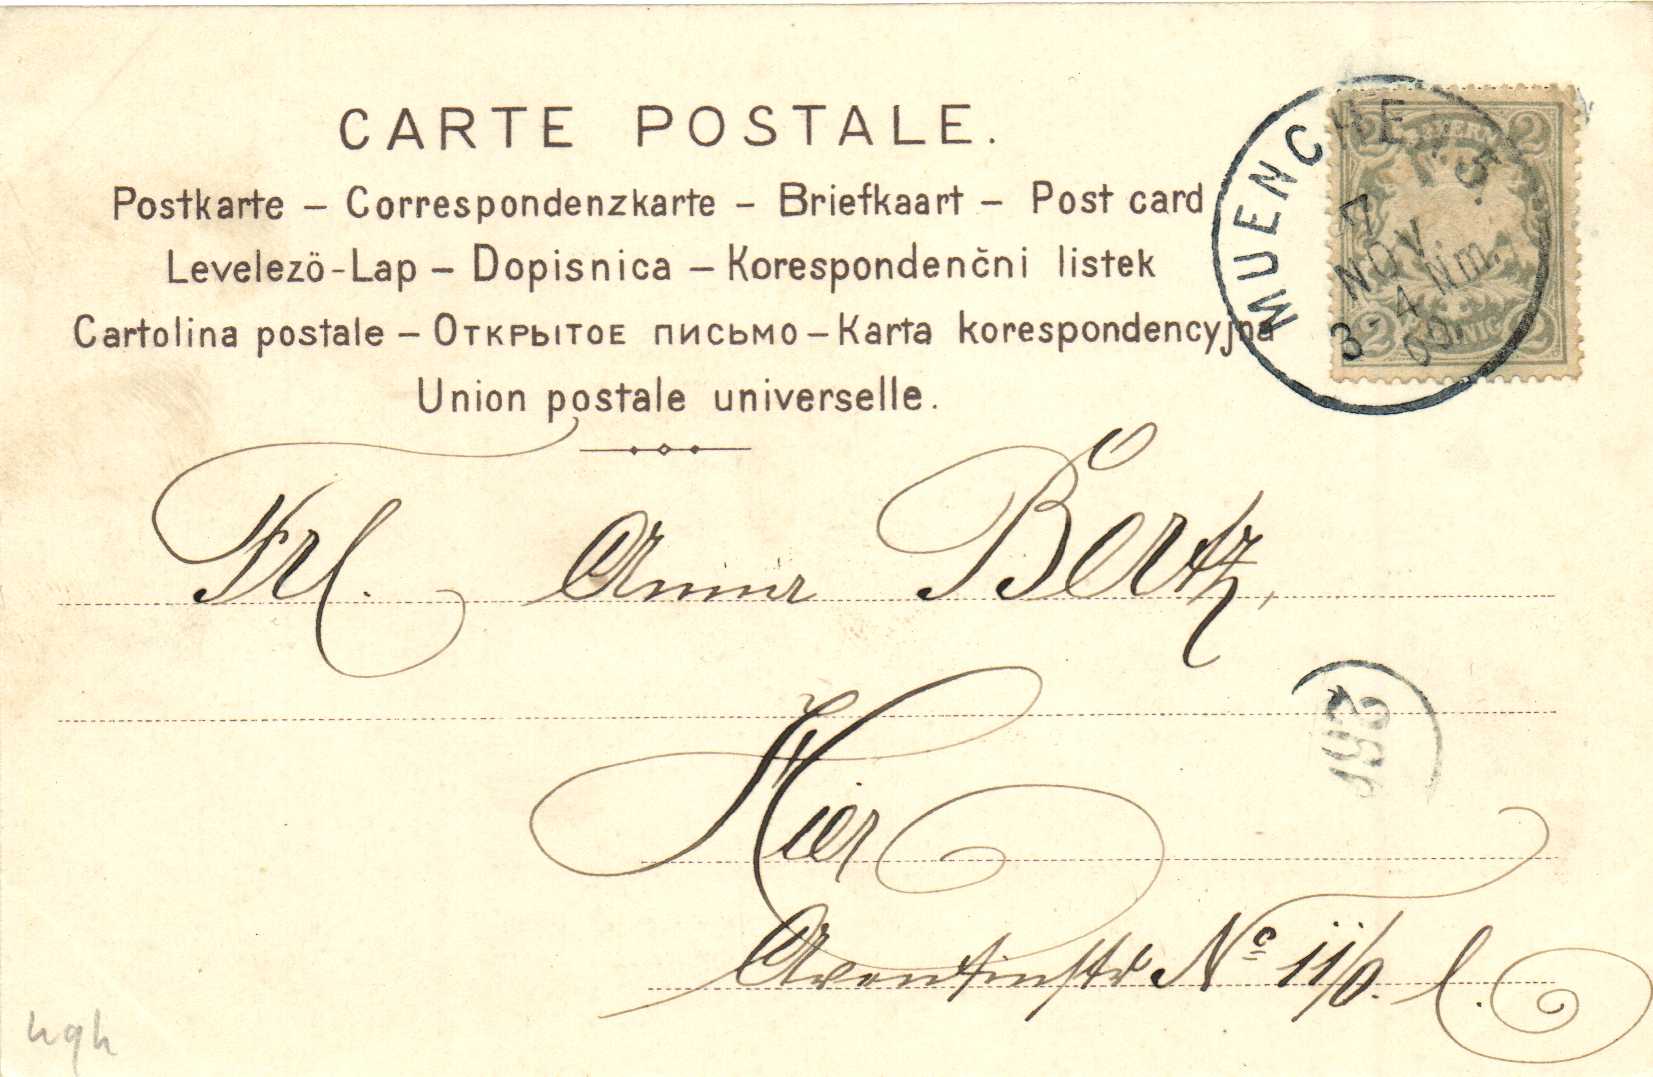 CARTE POSTALE.
Postkarte – Correspondenzkarte – Briefkaart – Post card
Levelezö-Lap – Dopisnica – Korespondenčni listek
Cartolina postale – Открытое письмо – Karta korespondencyjna
Union postale universelle.
MUENCHEN 15.
17
NOV
3 - 4 Nm.
00.
BAYERN
2 2
2 2
PFENNIG
Frl. Anna Bertz,
Hier
Aventinstr No 11/0. l.